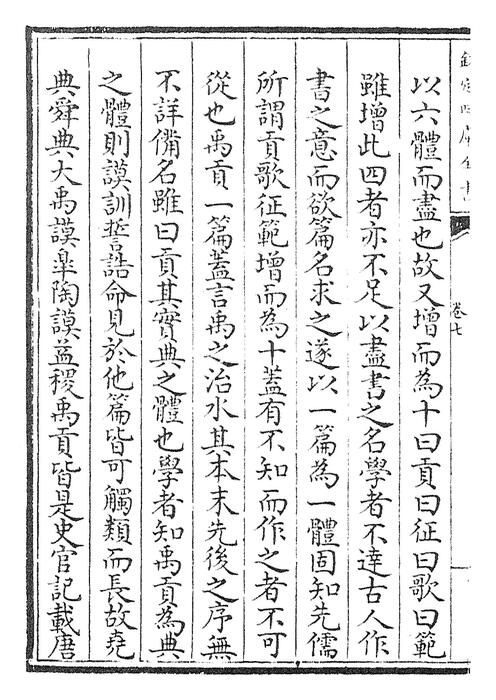 欽定四庫全書
卷七
以六體而盡也故又增而為十曰貢曰征曰歌曰範
雖增此四者亦不足以盡書之名學者不達古人作
書之意而欲篇名求之遂以一篇為一體固知先儒
所謂貢歌征範增而為十蓋有不知而作之者不可
從也禹貢一篇蓋言禹之治水其本末先後之序無
不詳備名雖曰貢其實典之體也學者知禹貢為典
之體則謨訓誓誥命見於他篇皆可觸類而長故堯
典舜典大禹謨臯陶謨益稷禹貢皆是史官記載唐